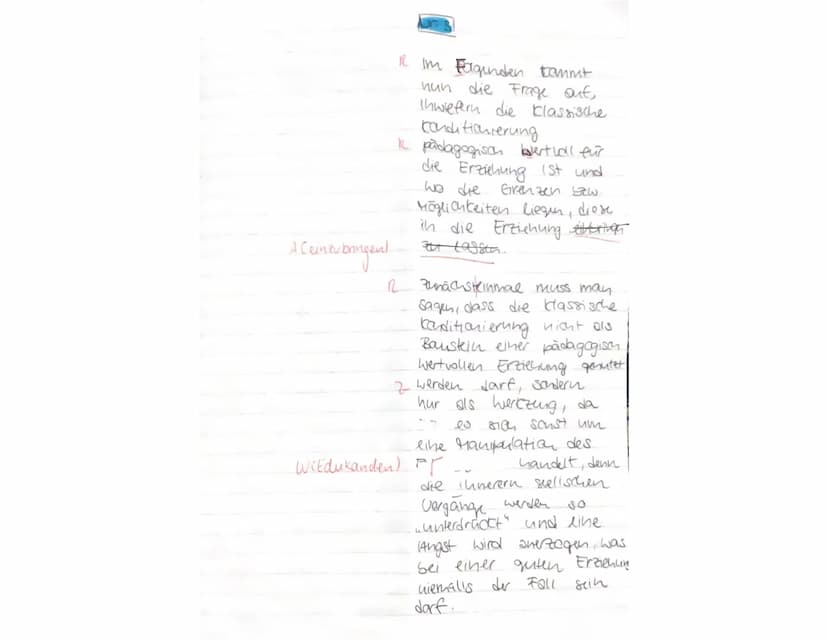 Nr. 3
R Im Folgenden kommt
nun die Frage auf,
inwiefern die klassische
Konditionierung
R pädagogisch wertvoll für
die Erziehung ist und
wo die Grenzen bzw
Möglichkeiten liegen, diese
in die Erziehung
A (einzubringen) zu lassen.
R Zunächsteinmal muss man
sagen, dass die klassische
Konditionierung nicht als
Baustein einer pädagogisch
wertvollen Erziehung genutzt
Z werden darf, sondern
nur als Werkzeug, da
es sich sonst um
eine Manipulation des
W (Edukanden) handelt, denn
die innerern seelischen
Vorgänge werden so
„unterdrückt" und eine
Angst wird anerzogen, was
bei einer guten Erziehun
niemals der Fall sein
darf.